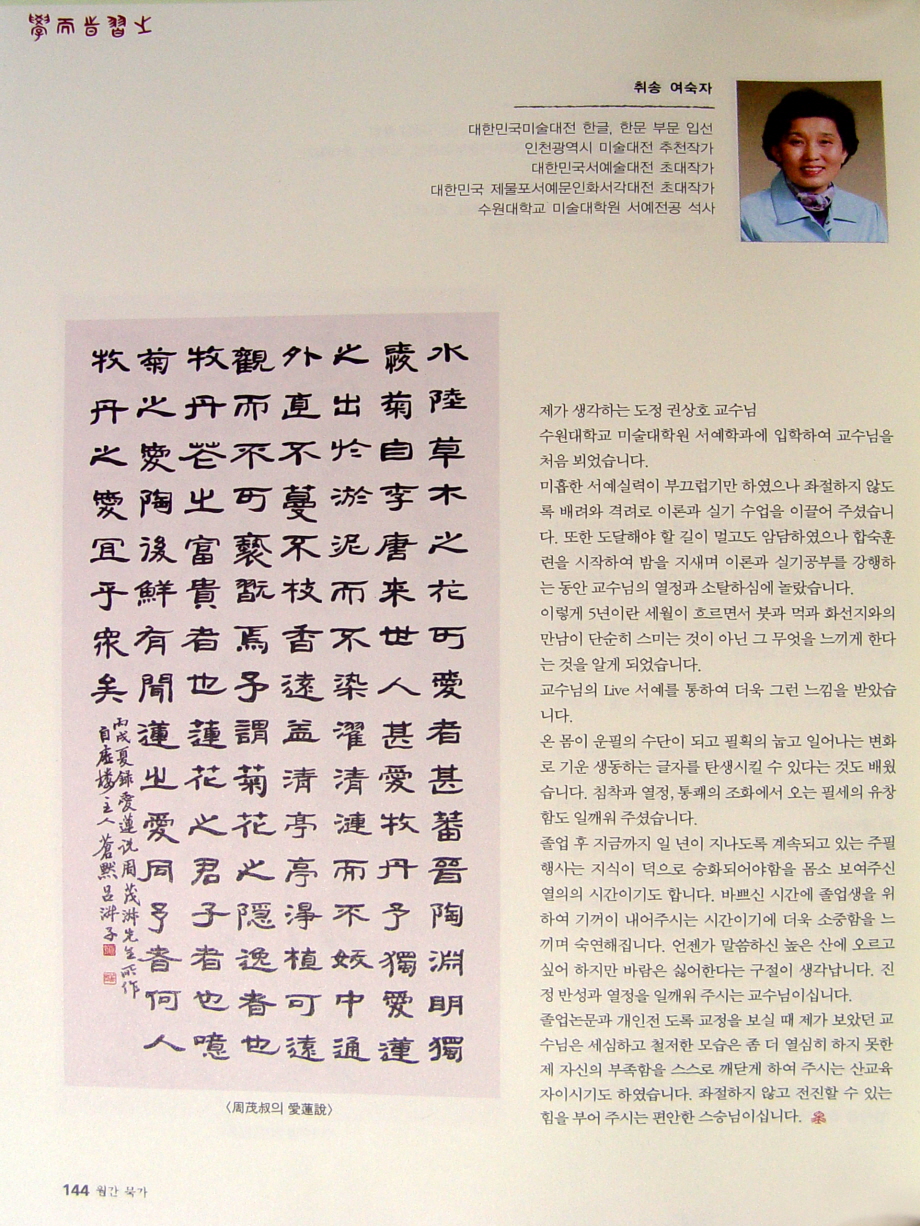 學而時習之
취송 여숙자
대한민국미술대전 한글, 한문 부문 입선
인천광역시 미술대전 추천작가
대한민국서예술대전 초대작가
대한민국 제물포서예문인화서각대전 초대작가
수원대학교 미술대학원 서예전공 석사
水陸草木之花可愛者甚蕃晉陶淵明獨
愛菊自李唐來世人甚愛牧丹予獨愛蓮
之出於淤泥而不染濯清漣而不妖中通
外直不蔓不枝香遠益清亭亭淨植可遠
觀而不可褻翫焉予謂菊花之隱逸者也
牧丹花之富貴者也蓮花之君子者也噫
菊之愛陶後鮮有聞蓮之愛同予者何人
牧丹之愛宜乎衆矣
丙戌夏錄愛蓮說周茂叔先生所作
自虛樓主人蒼黙呂淑子
〈周茂叔의 愛蓮說〉
제가 생각하는 도정 권상호 교수님
수원대학교 미술대학원 서예학과에 입학하여 교수님을
처음 뵈었습니다.
미흡한 서예실력이 부끄럽기만 하였으나 좌절하지 않도
록 배려와 격려로 이론과 실기 수업을 이끌어 주셨습니
다. 또한 도달해야 할 길이 멀고도 암담하였으나 합숙훈
련을 시작하여 밤을 지새며 이론과 실기공부를 강행하
는 동안 교수님의 열정과 소탈하심에 놀랐습니다.
이렇게 5년이란 세월이 흐르면서 붓과 먹과 화선지와의
만남이 단순히 스미는 것이 아닌 그 무엇을 느끼게 한다
는 것을 알게 되었습니다.
교수님의 Live 서예를 통하여 더욱 그런 느낌을 받았습
니다.
온 몸이 운필의 수단이 되고 필획의 눕고 일어나는 변화
로 기운 생동하는 글자를 탄생시킬 수 있다는 것도 배웠
습니다. 침착과 열정, 통쾌의 조화에서 오는 필세의 유창
함도 일깨워 주셨습니다.
졸업 후 지금까지 일 년이 지나도록 계속되고 있는 주필
행사는 지식이 덕으로 승화되어야함을 몸소 보여주신
열의의 시간이기도 합니다. 바쁘신 시간에 졸업생을 위
하여 기꺼이 내어주시는 시간이기에 더욱 소중함을 느
끼며 숙연해집니다. 언젠가 말씀하신 높은 산에 오르고
싶어 하지만 바람은 싫어한다는 구절이 생각납니다. 진
정 반성과 열정을 일깨워 주시는 교수님이십니다.
졸업논문과 개인전 도록 교정을 보실 때 제가 보았던 교
수님은 세심하고 철저한 모습은 좀 더 열심히 하지 못한
제 자신의 부족함을 스스로 깨닫게 하여 주시는 산교육
자이시기도 하였습니다. 좌절하지 않고 전진할 수 있는
힘을 부어 주시는 편안한 스승님이십니다.
144 월간 묵가